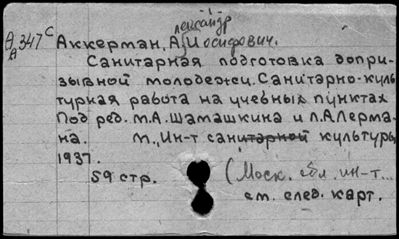 лександр
А 347с Аккерман, А. Иосифович.
А
Санитарная подготовка допри-
зывной молодежи. Санитарно-куль
туркая работа на учебных пунктах
Под ред. М.А. Шамашкина и Л.А. Лерма-
на. М., Ин-т санитарной культуры,
1937.
59 стр. (Моск. обл. ин-т...
см. след. карт.